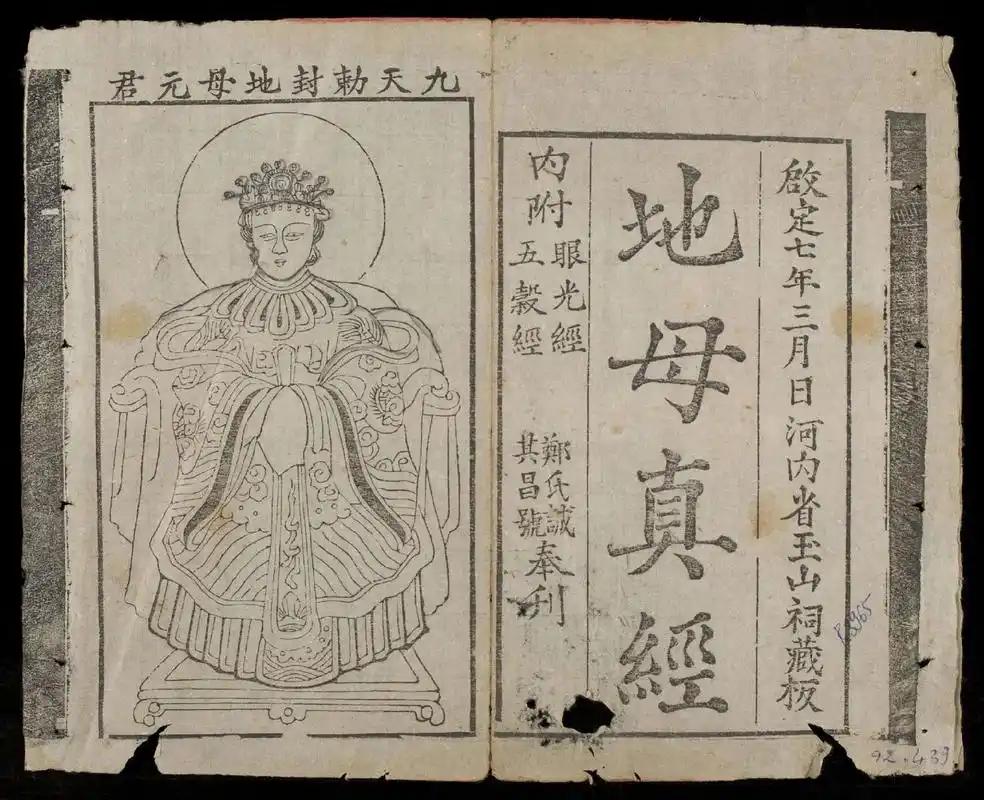 啟定七年三月日河内省玉山祠藏板
地母真經
内附眼光經五穀經
鄭氏誠其昌號奉刊
九天勅封地母元君
92.439